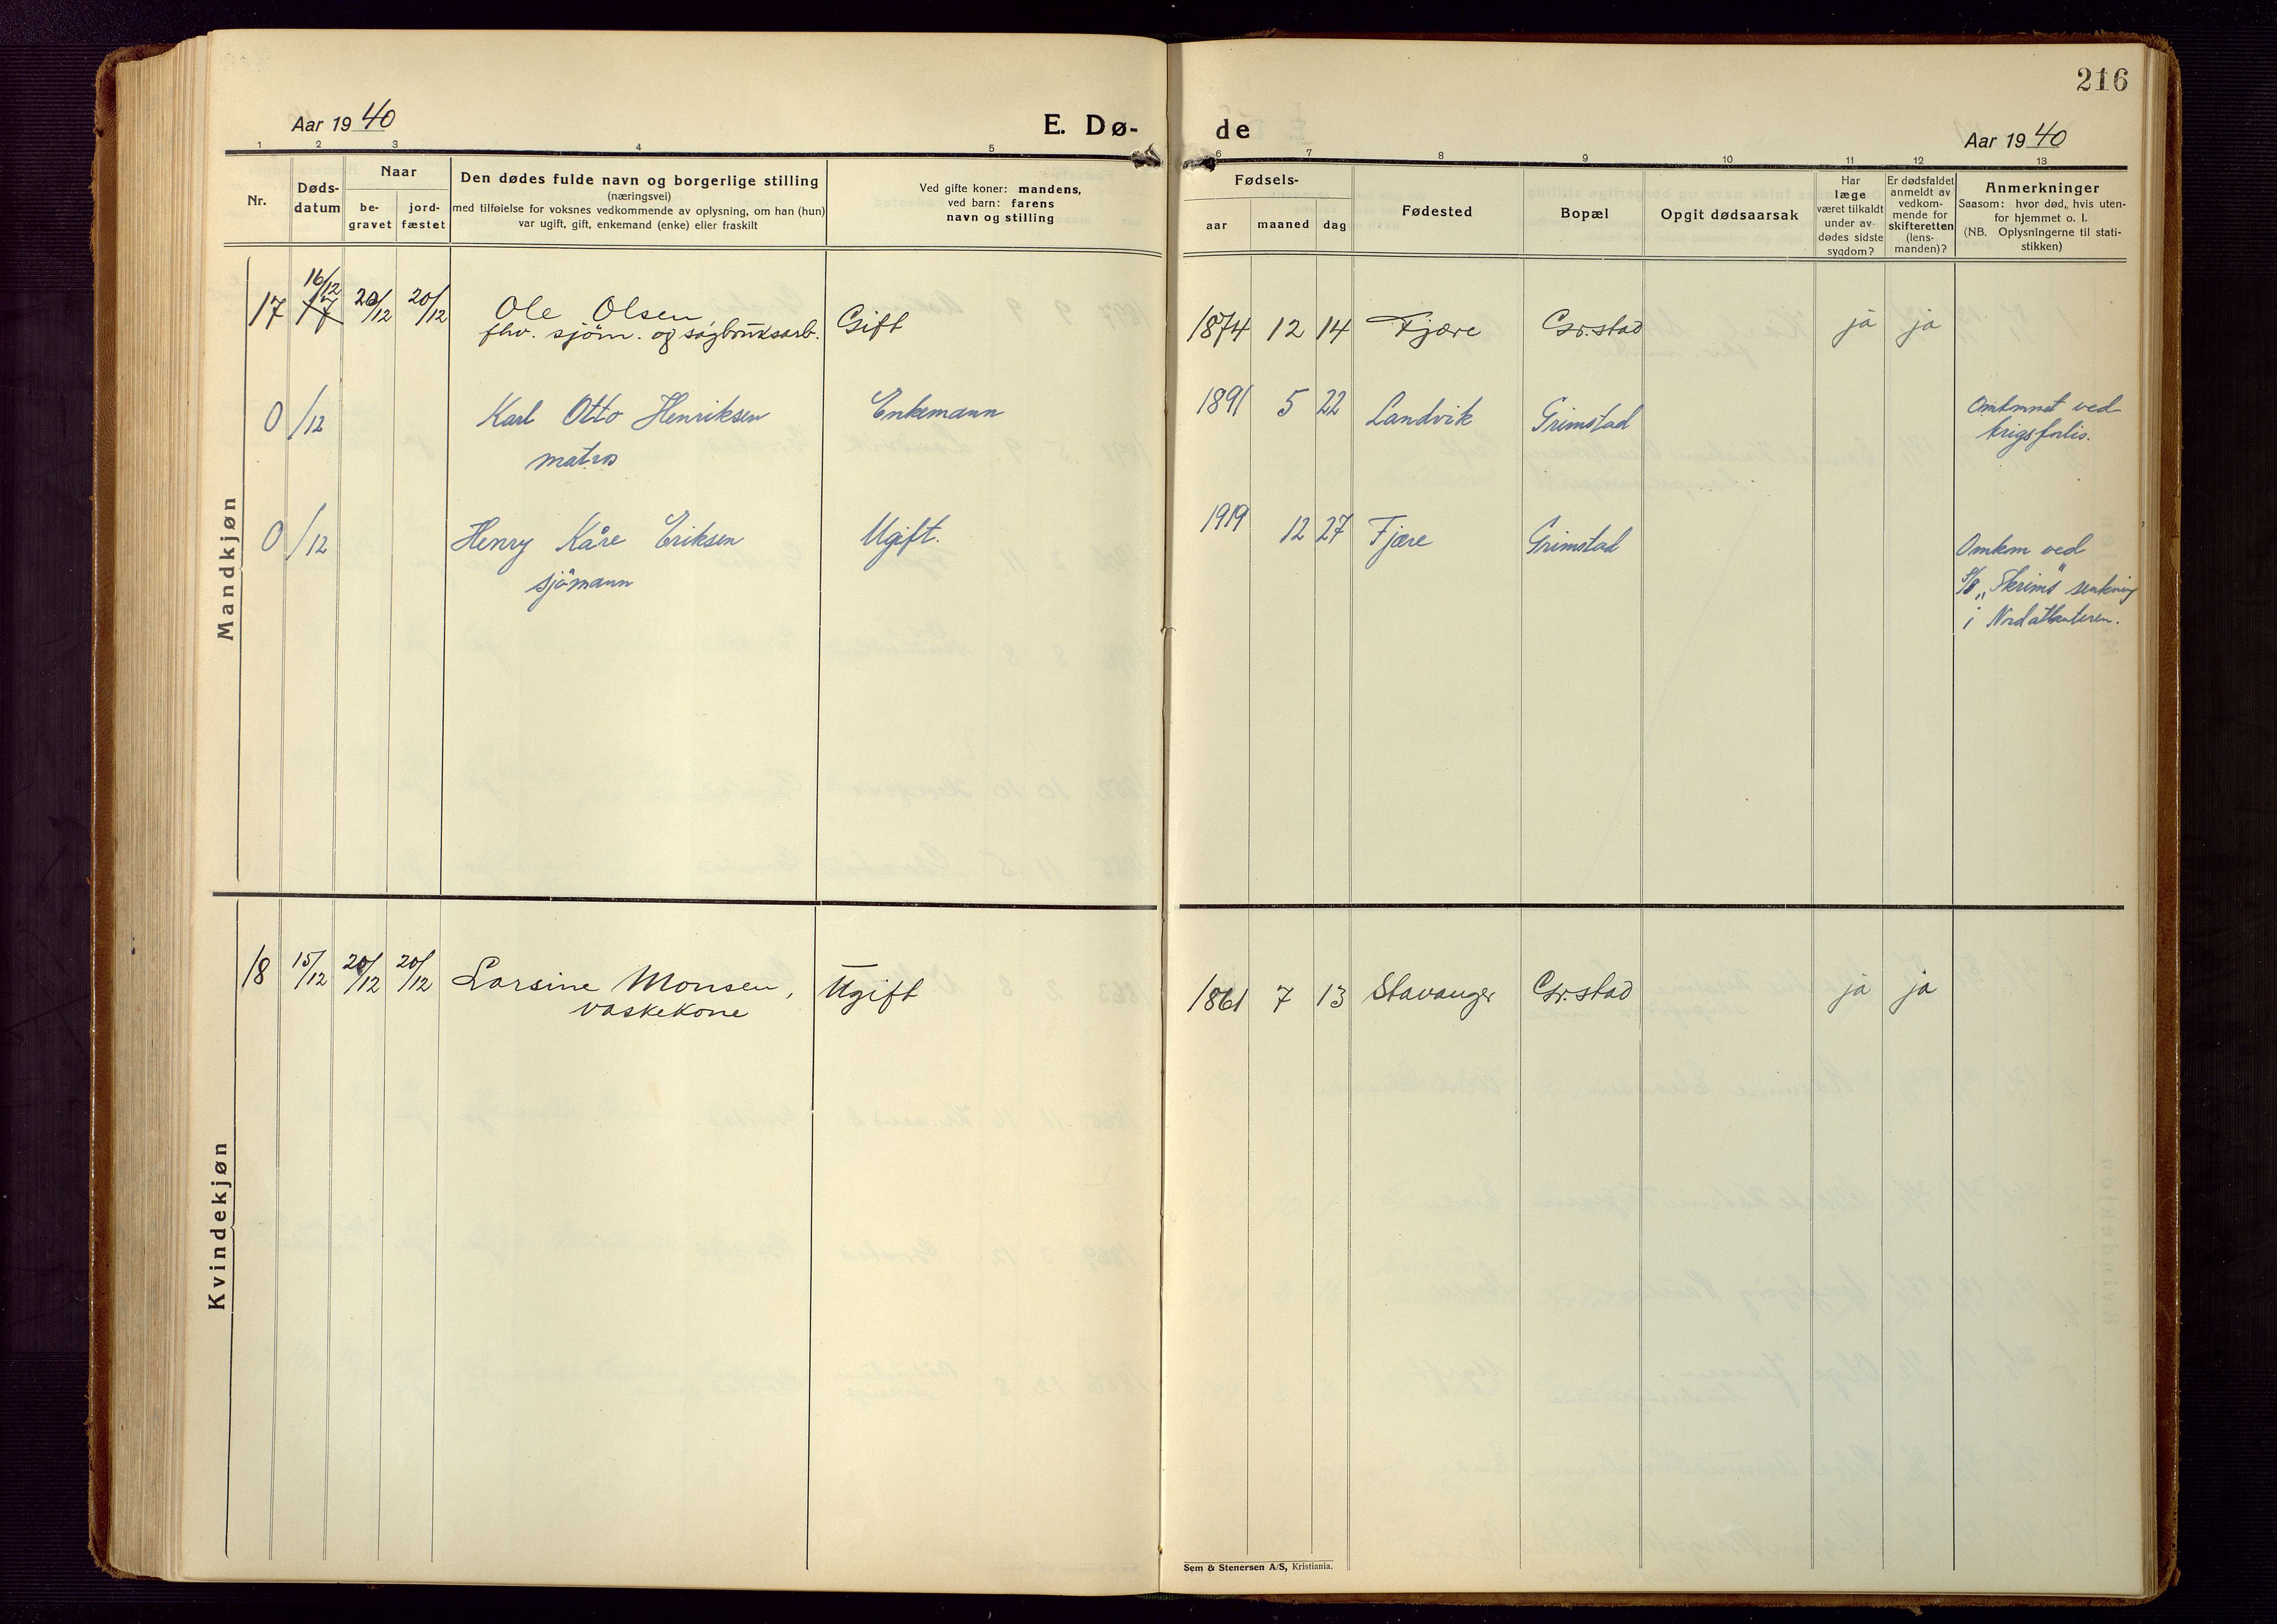 216
Aar 1940
E. Dø-
de
Aar 1940
1 2 3 4 5 6 7 8 9 10 11 12 13
Nr.
Døds-
datum
Naar
be-
gravet
jord-
fæstet
Den dødes fulde navn og borgerlige stilling
(næringsvei)
med tilføielse for voksnes vedkommende av oplysning, om han (hun)
var ugift, gift, enkemand (enke) eller fraskilt
Ved gifte koner: mandens,
ved barn: farens
navn og stilling
Fødsels-
aar maaned dag
Fødested
Bopæl
Opgit dødsaarsak
Har
læge
været tilkaldt
under av-
dødes sidste
sygdom?
Er dødsfaldet
anmeldt av
vedkom-
mende for
skifteretten
(lens-
manden)?
Anmerkninger
Saasom: hvor død, hvis uten-
for hjemmet o. l.
(NB. Oplysningerne til stati-
stikken)
Mandkjøn
16/12
17 17 20/12 20/12 Ole Olsen Gift 1874 12 14 Fjære Gr.stad ja ja
fhv. sjøm. og sagbruksarb.
0 /12 Karl Otto Henriksen Enkemann 1891 5 22 Landvik Grimstad Omkommet ved
matros krigsforlis.
0 /12 Henry Kåre Eriksen Ugift. 1919 12 27 Fjære Grimstad Omkm ved
sjømann S/S „Skrims" senkning
i Nordatlanteren.
Kvindekjøn
18 15/12 20/12 20/12 Larsine Monsen, Ugift 1861 7 13 Stavanger Gr.stad ja ja
vaskekone
Sem & Stenersen A/S, Kristiania.